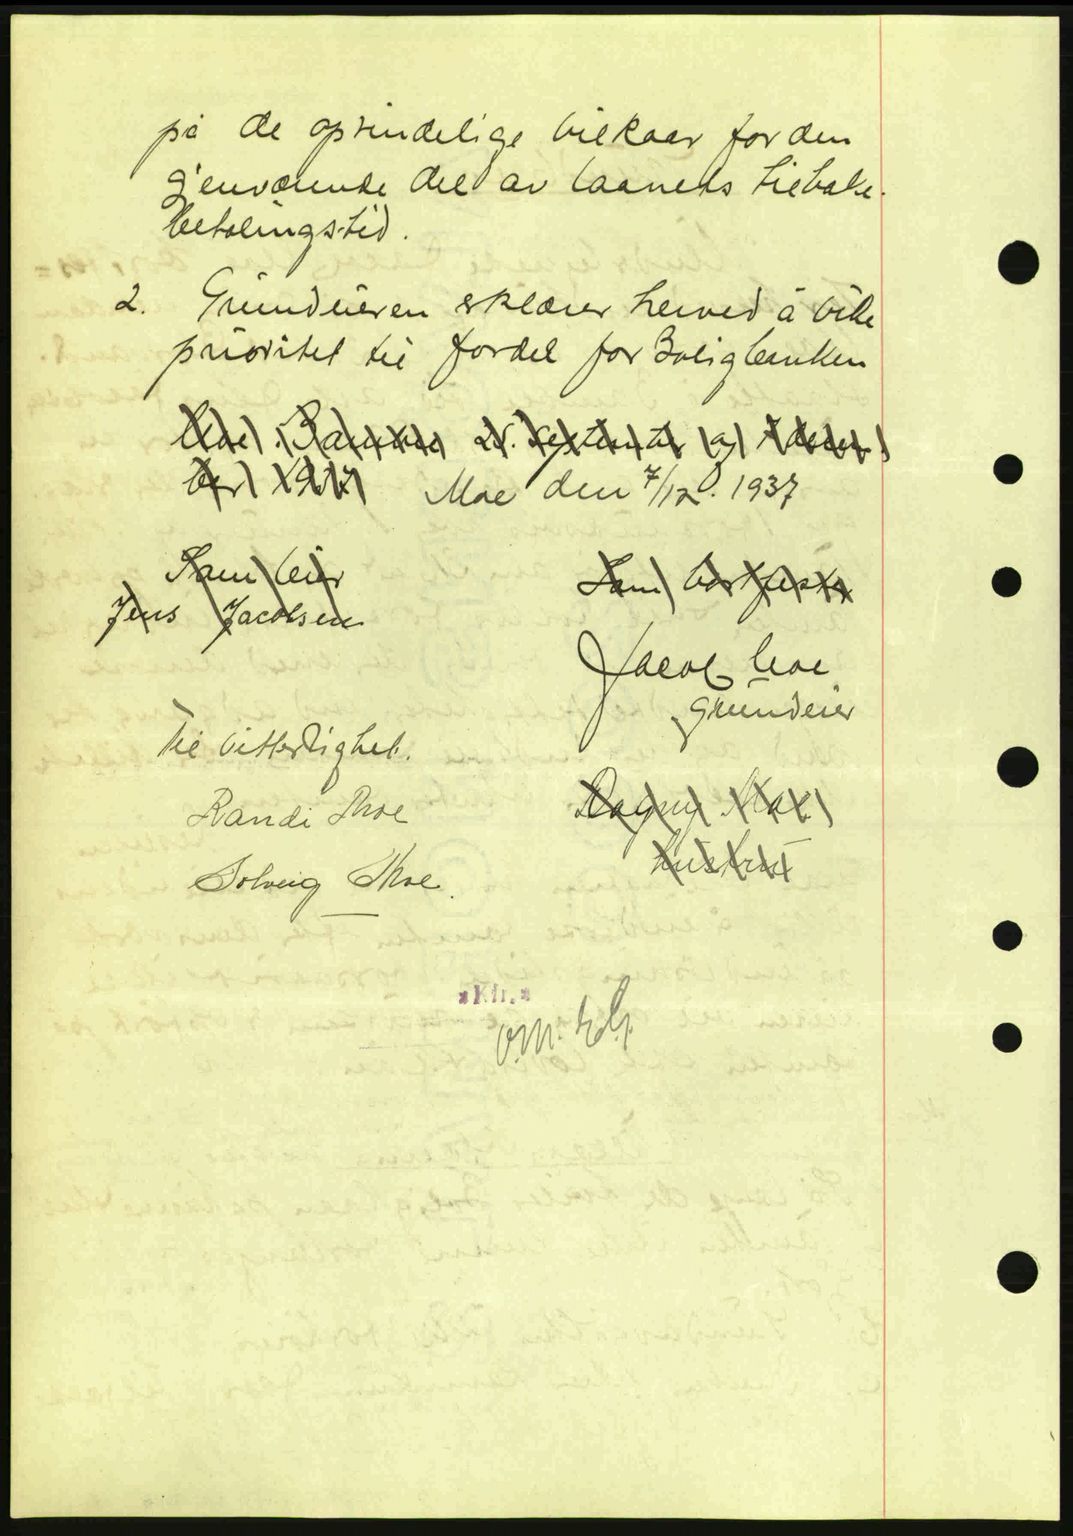 på de oprindelige vilkaar for den
gjenværende del av laanets tilbake-
betalingstid.
2. Grundeieren erklærer herved å vike
prioritet til fordel for Boligbanken
Moe den 7/12. 1937
Som eier
Som bortfester
Jens Jacobsen
Jacob Moe
grundeier
Til vitterlighet.
Randi Moe
Dagny Moe
hustru
Solveig Moe.